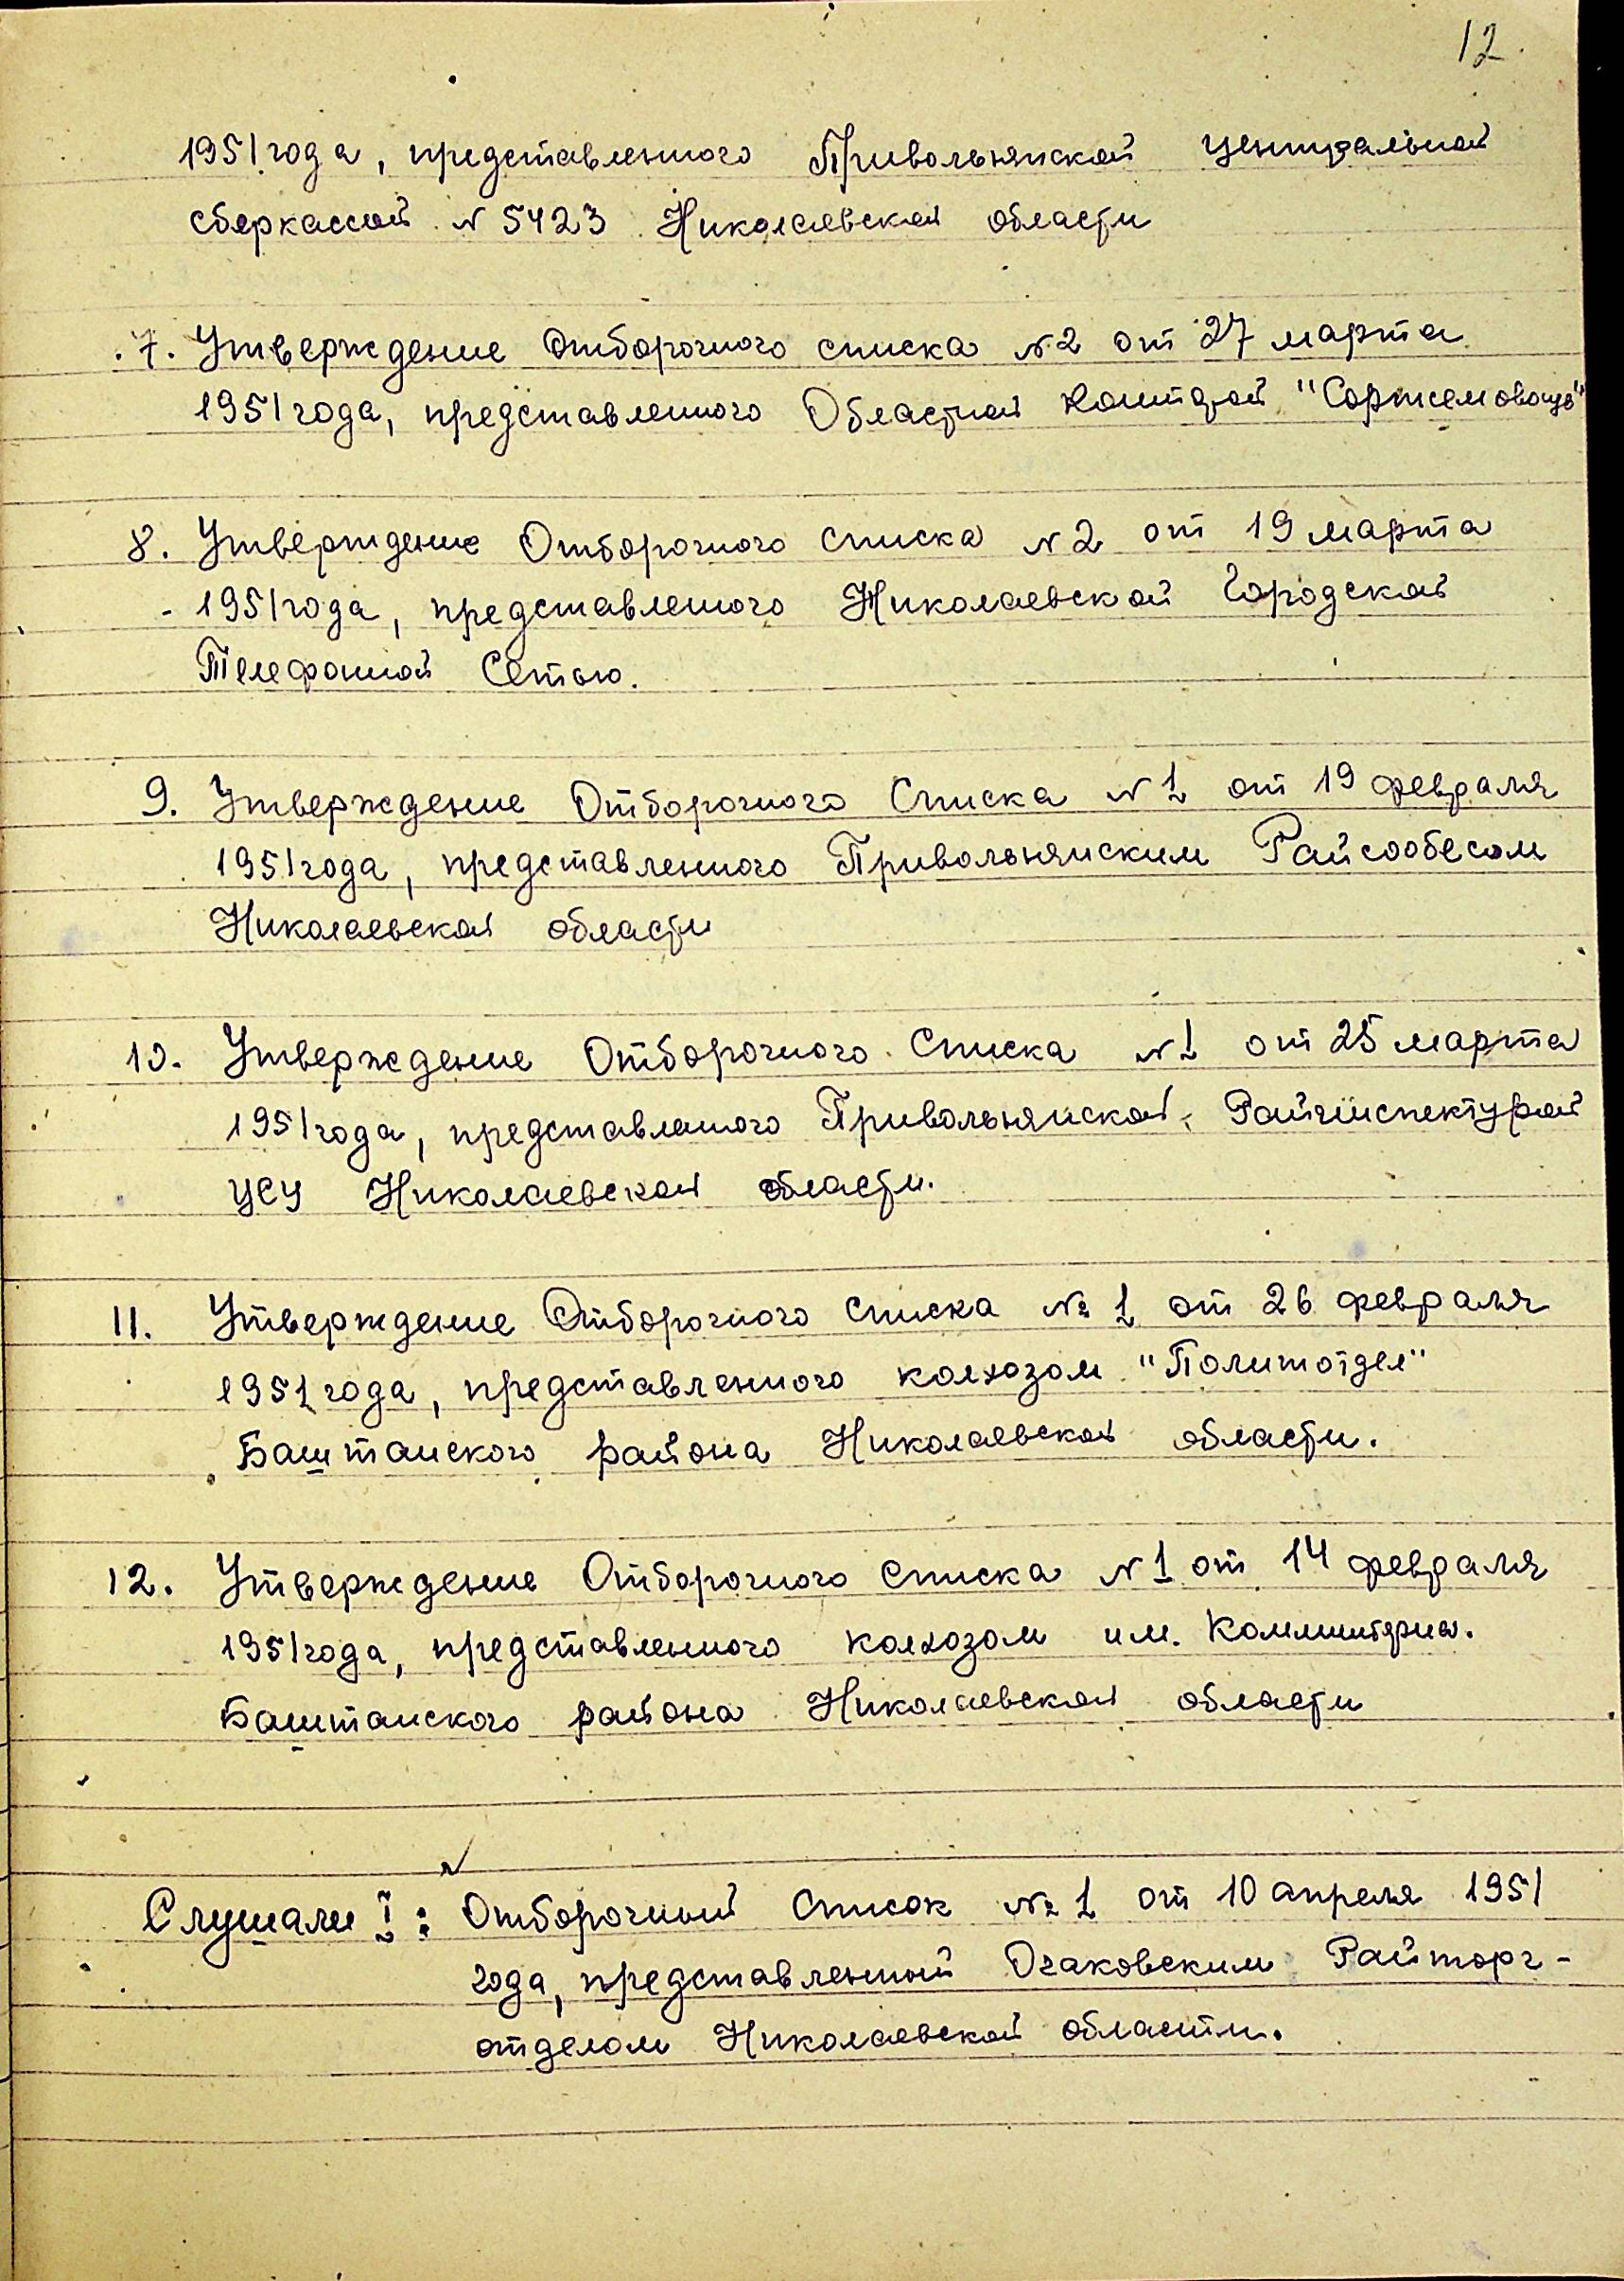 12.
1951 года, представленного Привольнянской центральной
сберкассой N 5423 Николаевской области
7. Утверждение отборочного списка N 2 от 27 марта
1951 года, представленного Областной конторой "
8. Утверждение Отборочного списка N 2 от 19 марта
1951 года, представленого Николаевской Городской
Телефонной Сетью.
9. Утверждение Отборочного Списка N 1 от 19 февраля
1951 года, представленного Привольнянским Райсообесом
Николаевской области
10. Утверждение Отборочного Списка N 1 от 25 марта
1951 года, представленого Привольнянской Райинспектурой
ЦСУ Николаевской области.
11. Утверждение Отборочного списка № 1 от 26 февраля
1951 года, представленного колхозом "Политотдел"
Баштанского района Николаевской области.
12. Утверждение Отборочного списка N 1 от 14 февраля
1951 года, представленного колхозом им. Коминтерна.
Баштанского района Николаевской области
Слушали I: Отборочный список № 1 от 10 апреля 1951
года, представленный Очаковским Райторг-
отделом Николаевской области.